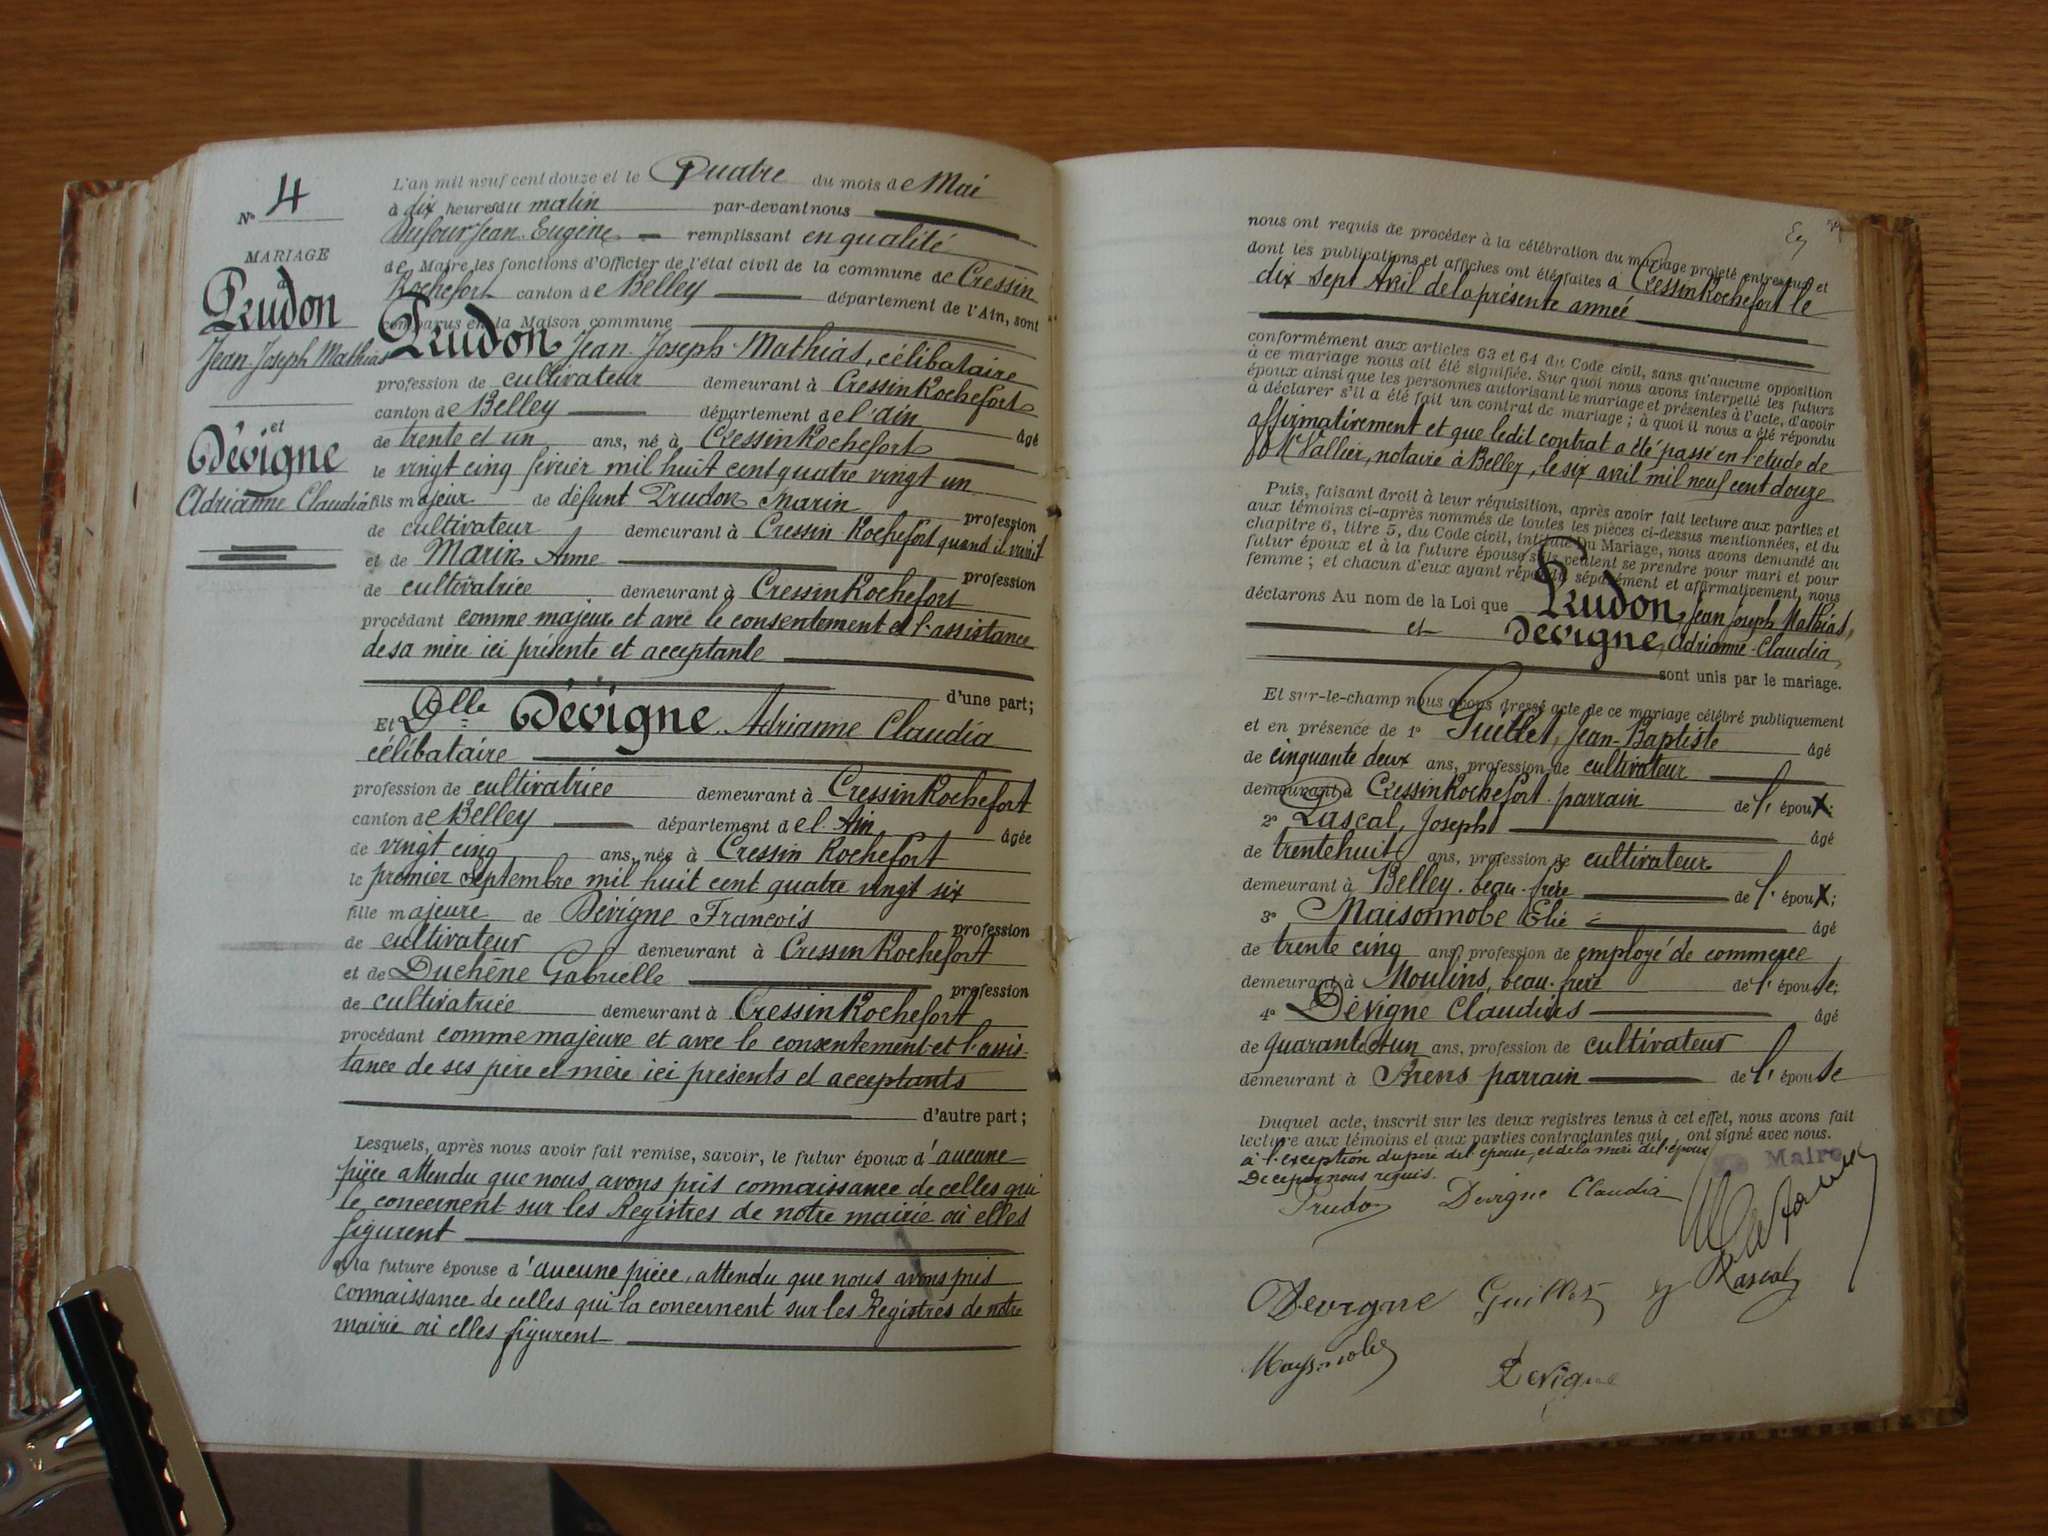 N° 4
MARIAGE
Prudon
Jean Joseph Mathias
et
Dévigne
Adrianne Claudia
L'an mil neuf cent douze et le Quatre du mois de Mai
à dix heures du matin par-devant nous
Dufour Jean Eugène remplissant en qualité
de Maire les fonctions d'Officier de l'état civil de la commune de Cressin
Rochefort canton de Belley département de l'Ain, sont
comparus en la Maison commune
Prudon Jean Joseph Mathias, célibataire
profession de cultivateur demeurant à Cressin Rochefort
canton de Belley département de l'Ain âgé
de trente et un ans, né à Cressin Rochefort
le vingt cinq février mil huit cent quatre vingt un
fils majeur de défunt Prudon Marin profession
de cultivateur demeurant à Cressin-Rochefort quand il vivait
et de Marin Anne profession
de cultivatrice demeurant à Cressin Rochefort
procédant comme majeur et avec le consentement et l'assistance
de sa mère ici présente et acceptante
d'une part;
Et Dlle Dévigne Adrianne Claudia
célibataire
profession de cultivatrice demeurant à Cressin Rochefort
canton de Belley département de l'Ain âgée
de vingt cinq ans, née à Cressin Rochefort
le premier Septembre mil huit cent quatre vingt six
fille majeure de Dévigne François profession
de cultivateur demeurant à Cressin Rochefort
et de Duchêne Gabrielle profession
de cultivatrice demeurant à Cressin Rochefort
procédant comme majeure et avec le consentement et l'assis-
tance de ses père et mère ici présents et acceptants
d'autre part;
Lesquels, après nous avoir fait remise, savoir, le futur époux d'aucune
pièce attendu que nous avons pris connaissance de celles qui
le concernent sur les Registres de notre mairie où elles
figurent
et la future épouse d'aucune pièce, attendu que nous avons pris
connaissance de celles qui la concernent sur les Registres de notre
mairie où elles figurent
nous ont requis de procéder à la célébration du mariage projeté entre eux et
dont les publications et affiches ont été faites à Cressin Rochefort le
dix sept Avril de la présente année
conformément aux articles 63 et 64 du Code civil, sans qu'aucune opposition
à ce mariage nous ait été signifiée. Sur quoi nous avons interpellé les futurs
époux ainsi que les personnes autorisant le mariage et présentes à l'acte, d'avoir
à déclarer s'il a été fait un contrat de mariage; à quoi il nous a été répondu
affirmativement et que ledit contrat a été passé en l'étude de
Me Vallier, notaire à Belley, le six avril mil neuf cent douze
Puis, faisant droit à leur réquisition, après avoir fait lecture aux parties et
aux témoins ci-après nommés de toutes les pièces ci-dessus mentionnées, et du
chapitre 6, titre 5, du Code civil, intitulé Du Mariage, nous avons demandé au
futur époux et à la future épouse s'ils veulent se prendre pour mari et pour
femme; et chacun d'eux ayant répondu séparément et affirmativement, nous
déclarons Au nom de la Loi que Prudon, Jean Joseph Mathias,
et Dévigne, Adrianne Claudia,
sont unis par le mariage.
Et sur-le-champ nous avons dressé acte de ce mariage célébré publiquement
et en présence de 1° Guillet, Jean-Baptiste âgé
de cinquante deux ans, profession de cultivateur
demeurant à Cressin Rochefort parrain de l'époux;
2° Pascal, Joseph âgé
de trente huit ans, profession de cultivateur
demeurant à Belley. beau-frère de l'époux;
3° Maisonnobe Elie âgé
de trente cinq ans, profession de employé de commerce
demeurant à Moulins, beau-frère de l'épouse;
4° Dévigne Claudius âgé
de quarante et un ans, profession de cultivateur
demeurant à Brens parrain de l'épouse
Duquel acte, inscrit sur les deux registres tenus à cet effet, nous avons fait
lecture aux témoins et aux parties contractantes qui ont signé avec nous.
à l'exception du père de l'épouse, et de la mère de l'époux
De ce par nous requis.
Le Maire
Prudon Devigne Claudia
Devigne Guillet J Pascal
Devigne